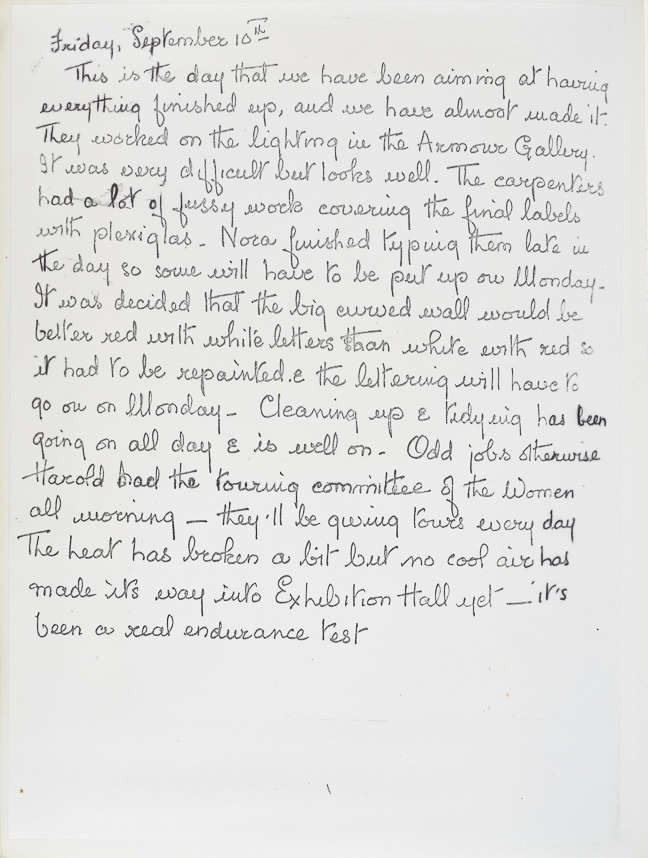 Friday, September 10th
This is the day that we have been aiming at having
everything finished up, and we have almost made it.
They worked on the lighting in the Armour Gallery.
It was very difficult but looks well. The carpenters
had a lot of fussy work covering the final labels
with plexiglas - Nora finished typing them late in
the day so some will have to be put up on Monday -
It was decided that the big curved wall would be
better red with white letters than white with red so
it had to be repainted. & the lettering will have to
go on on Monday - Cleaning up & tidying has been
going on all day & is well on - Odd jobs otherwise
Harold had the touring committee of the Women
all morning — they'll be giving tours every day
The heat has broken a bit but no cool air has
made its way into Exhibition Hall yet — it's
been a real endurance test